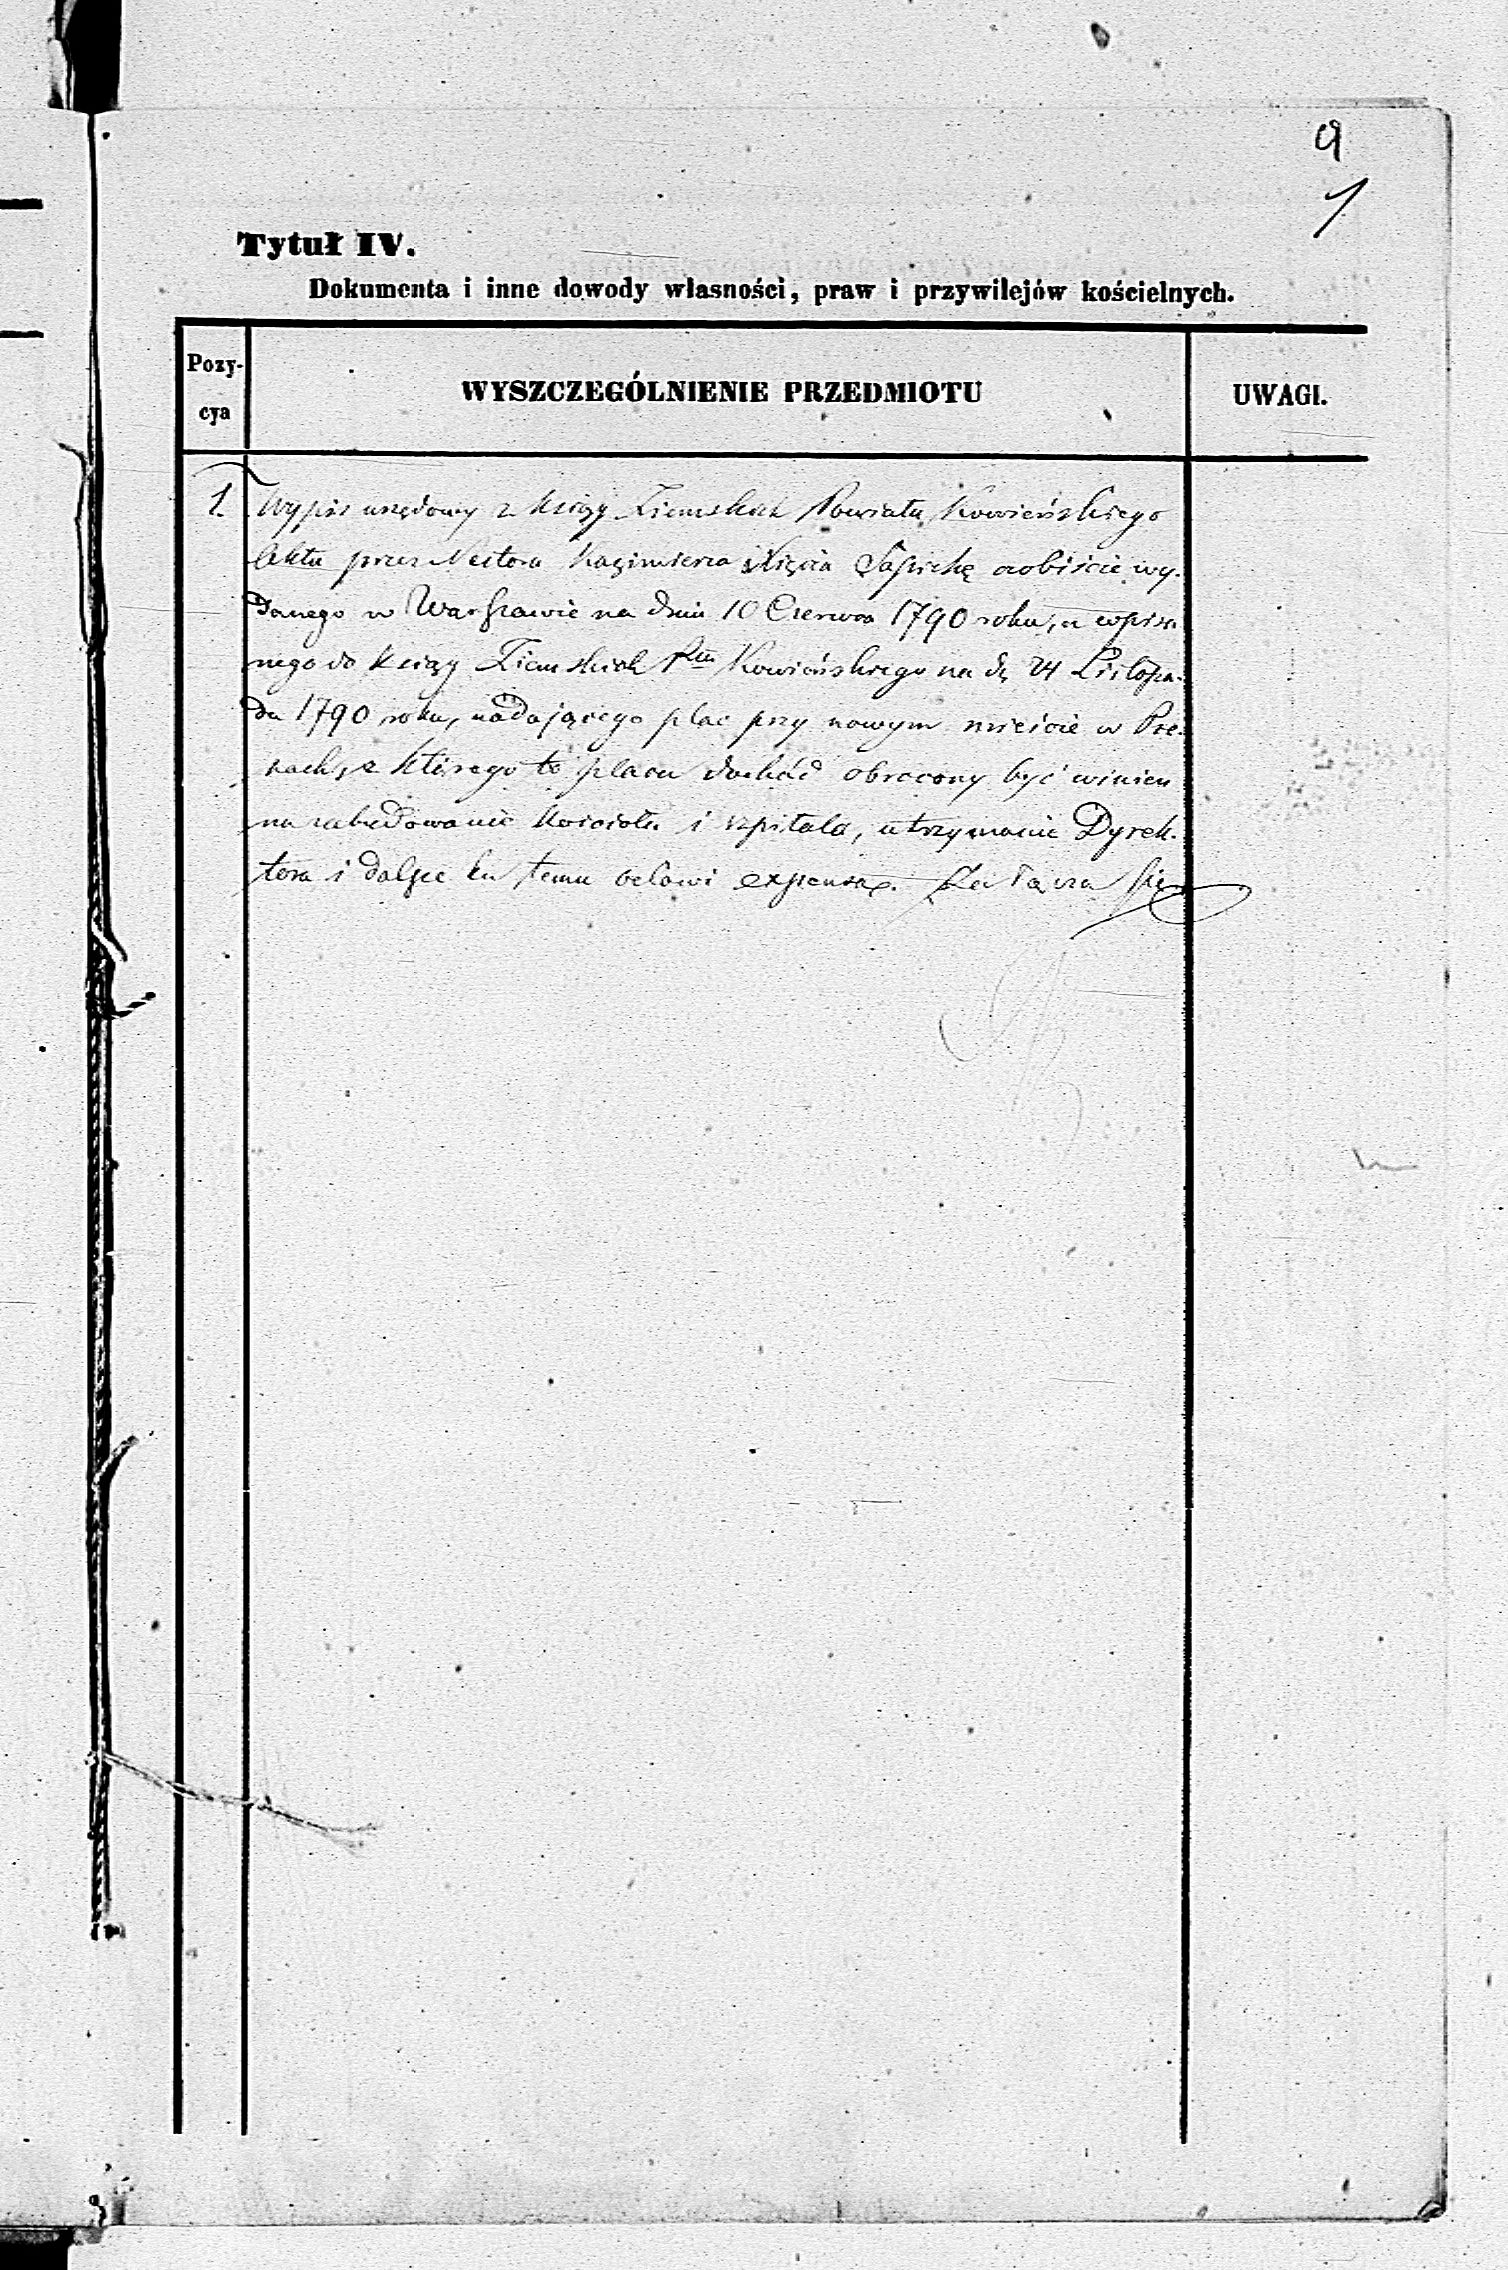 9
1
Tytuł IV.
Dokumenta i inne dowody własności, praw i przywilejów kościelnych.
Pozy-
cya
WYSZCZEGÓLNIENIE PRZEDMIOTU
UWAGI.
1. Wypis urzędowy z Ksiąg Ziemskich Powiatu Kowieńskiego
aktu przez Nestora Kazimierza Xięcia Sapiehę osobiście wy-
danego w Warszawie na dniu 10 Czerwca 1790 roku, a wpisa
nego do Ksiąg Ziemskich Ptu Kowieńskiego na dę 24 Listopa-
da 1790 roku, nadającego plac przy nowym mieście w Pre-
nach, z którego to placu dochód obrócony być winien
na zabudowanie Kościoła i szpitala, utrzymanie Dyrek-
tora i dalsze ku temu celowi expensa. Załącza się